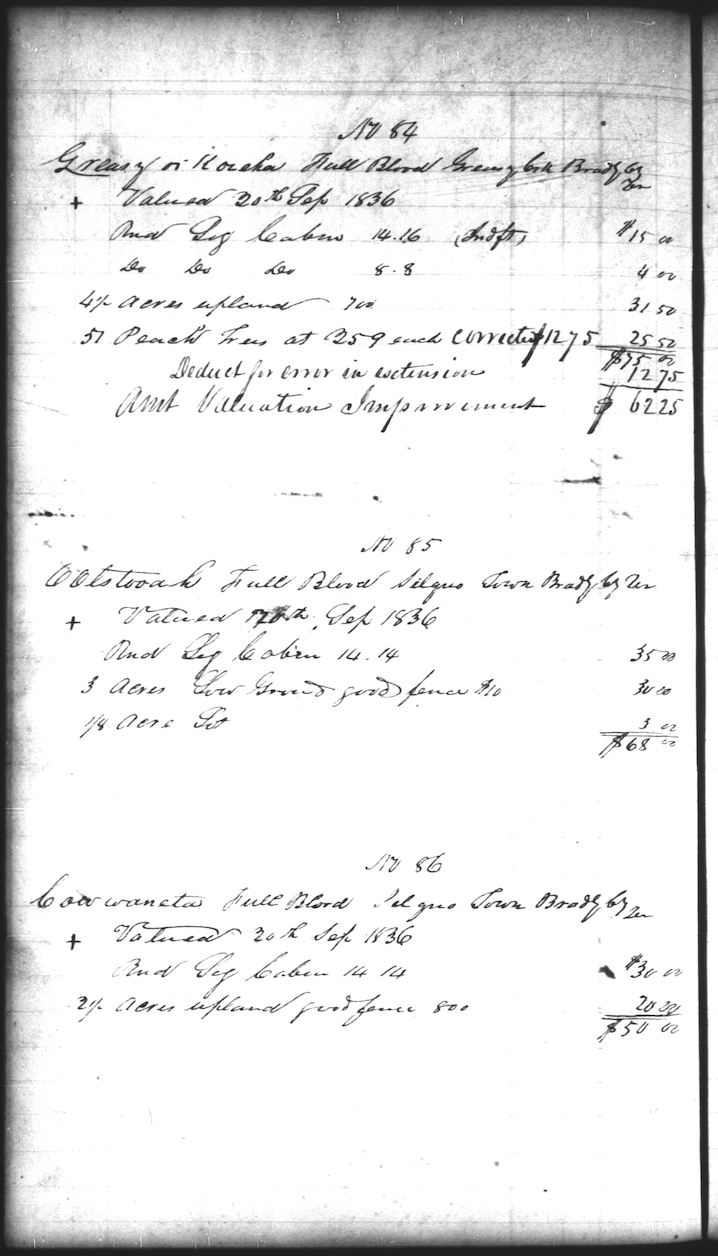 No 84
Greasy or Full Blood Greasy Crk Brady Cty Ten
+ Valued 20th Sep 1836
Rnd Log Cabin 14.16 (Indft) $15 00
Do Do Do 8.8 4 00
4½ Acres upland 700 31 50
51 Peach Trees at 25 9 each corrected $1275 25 50
$75 00
Deduct for error in extension 12 75
Amt Valuation Improvement $ 62 25
No 85
Full Blood Selquo Town Brady Cty Ten
+ Valued th Sep 1836
Rnd Log Cabin 14.14 35 00
3 Acres Low Ground good fence $10 30 00
1/8 Acre Lot 3 00
$68 00
No 86
Cowwaneta Full Blood Selquo Town Brady Cty Ten
+ Valued 20th Sep 1836
Rnd Log Cabin 14 14 $30 00
2½ Acres upland good fence 800 20 00
$50 00